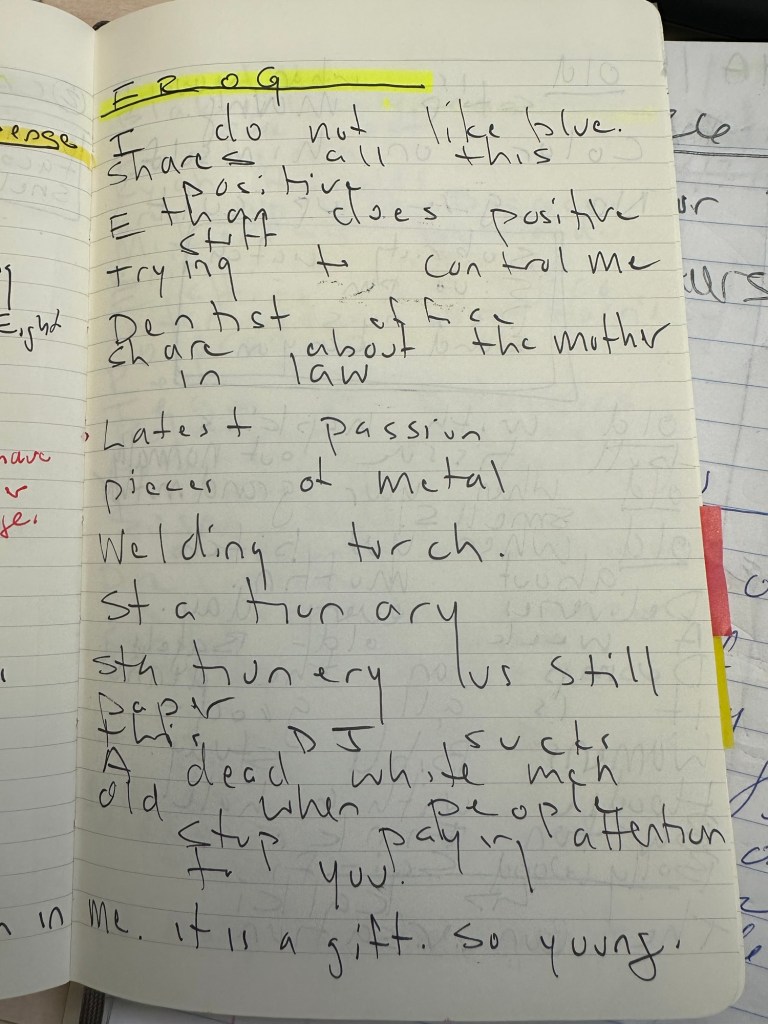 E R O G
I do not like blue.
shares all this
positive
Ethan does positive
stuff
trying to control me
Dentist office
share about the mother
in law
Latest passion
pieces of metal
Welding torch.
stationary
stationery vs still
paper
this DJ sucks
A dead white man
old when people
stop paying attention
to you.
in me. it is a gift. so young.
enge
Eight
have
r
ge.